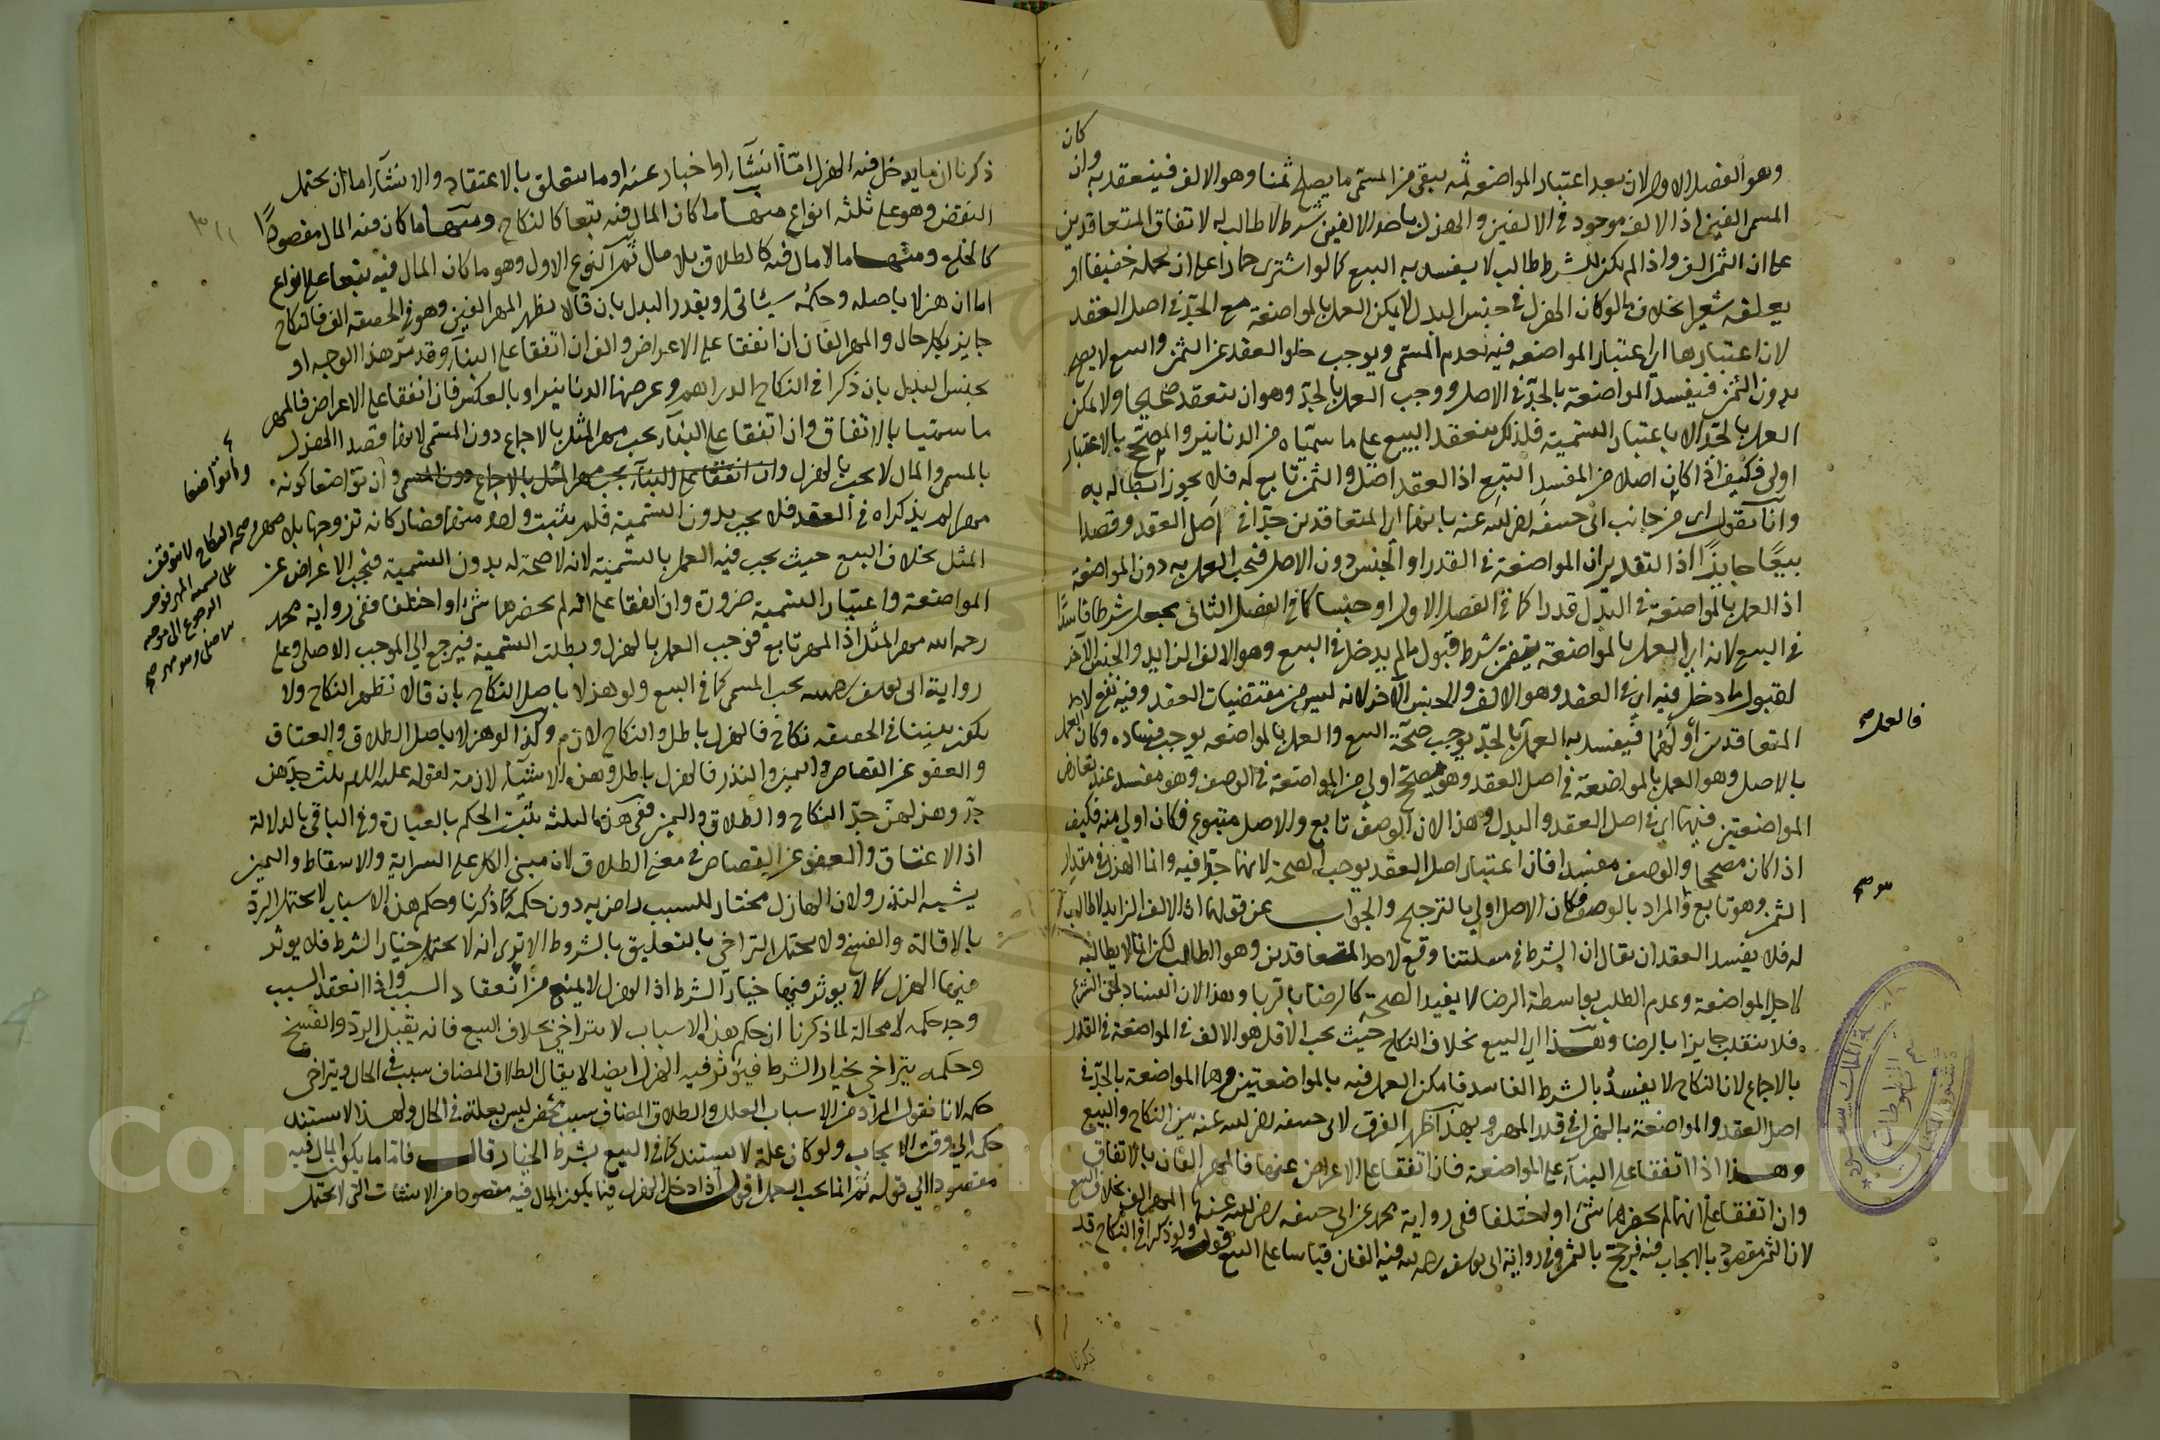 كان
وهو الفصل الاول لان بعد اعتبار المواضعة ثمه يبقى من المسمى ما يصلح ثمنا وهو الالف فينعقد به وان
المسمى الفين اذ الالف موجود في الالفين والهزل باحد الالفين شرط لا طالب له لاتفاق المتعاقدين
على ان الثمن الف واذا لم يكن للشرط طالب لا يفسد به البيع كما لو اشترى حمارا على ان يحمله خفيفا او
يعلفه شعيرا بخلاف ما لو كان الهزل في جنس البدل لا يمكن العمل بالمواضعة مع الجد في اصل العقد
لان اعتبارها اي اعتبار المواضعه فيه تعدم المسمى ويوجب خلو العقد عن الثمن والبيع لا يصح
بدون الثمن فيفسد المواضعة بالجد في الاصل ووجب العمل بالجد وهو ان ينعقد صحيحا ولا يمكن
العمل بالجد الا باعتبار التسمية فلذلك ينعقد البيع على ما سمياه من الدنانير والمصحح بالاعتبار
اولى فكيف اذا كان اصلا من المفسد التبع اذ العقد اصل والثمن تابع له فلا يجوز ابطاله به
وانا نقول اي من جانب ابي حنيفه رضي الله عنه بانهما اي المتعاقدين جدا في اصل العقد وقصدا
بيعا جايزا اذ التقدير ان المواضعة في القدر او الجنس دون الاصل فيجب العمل به دون المواضعة
اذ العمل بالمواضعة في البدل قدرا كما في الفصل الاول او جنسا كما في الفصل الثاني يجعل شرطا فاسدا
في البيع لانه اي العمل بالمواضعة يتضمن شرط قبول ما لم يدخل في البيع وهو الالف الزايد والجنس الآخر
لقبول ما دخل فيه اي في العقد وهو الالف والجنس الآخر لانه ليس من مقتضيات العقد وفيه نفع لاحد
المتعاقدين او لهما فيفسد به العمل بالجد يوجب صحة البيع والعمل بالمواضعه يوجب فساده وكان العمل
بالاصل وهو العمل بالمواضعة في اصل العقد وهو مصحح اولى من المواضعة في الوصف وهو مفسد عند تعارض
المواضعتين فيهما اي في اصل العقد والبدل وهذا لان الوصف تابع والاصل متبوع فكان اولى منه فكيف
اذا كان مصححا والوصف مفسدا فان اعتبار اصل العقد يوجب الصحة لانهما جدا فيه وانما الهزل في مقدار
الثمن وهو تابع والمراد بالوصف فكان الاصل اولى بالترجيح والجواب عن قولهما ان الالف الزايد لا طالب
له فلا يفسد العقد ان يقال ان الشرط في مسئلتنا وقع لاحد المتعاقدين وهو الطالب لكن انما لا يطالبه
لاجل المواضعة وعدم الطلب بواسطة الرضا لا يفيد الصحة كالرضا بالربا وهذا لان الفساد لحق الشرع
فلا ينقلب جايزا بالرضا وهذا اي البيع بخلاف النكاح حيث يجب الاقل هو الالف في المواضعة في القدر
بالاجماع لان النكاح لا يفسد بالشرط الفاسد فامكن العمل فيه بالمواضعتين وهما المواضعة بالجد في
اصل العقد والمواضعة بالهزل في قدر المهر وبهذا ظهر الفرق لابي حنيفه رضي الله عنه بين النكاح والبيع
وهذا اذا اتفقا على البناء على المواضعة فان اتفقا على الاعراض عنها فالمهر الفان بالاتفاق
وان اتفقا على انهما لم يحضرهما شيء او اختلفا ففي رواية محمد عن ابي حنيفه رضي الله عنه المهر الف بخلاف البيع
لان الثمن مقصود بالايجاب فيه فيرجح بالثمن وفي رواية ابي يوسف رحمه الله فيه الفان قياسا على البيع قوله ولو ذكرا في النكاح قد
فالعمل صح
هو صح
ذكرنا
ذكرنا ان ما يدخل فيه الهزل اما انشاء او اخبار عنه او ما يتعلق بالاعتقاد والانشاء اما ان يحتمل
النقض وهو على ثلثه انواع منها ما كان المال فيه تبعا كالنكاح ومنها ما كان فيه المال مقصودا
كالخلع ومنها ما لا مال فيه كالطلاق بلا مال ثم النوع الاول وهو ما كان المال فيه تبعا على انواع
اما ان هزلا باصله وحكمه سيئاتي او بقدر البدل بان قالا نظهر المهر الفين وهو في الحقيقة الف فالنكاح
جايز بكل حال والمهر الفان ان اتفقا على الاعراض والف ان اتفقا على البناء وقد مر هذا الوجه او
بجنس البدل بان ذكرا في النكاح الدراهم وغرضهما الدنانير او بالعكس فان اتفقا على الاعراض فالمهر
ما سميا بالاتفاق وان اتفقا على البناء يجب مهر المثل بالاجماع دون المسمى لانهما قصدا الهزل
بالمسمى والمال لا يجب بالهزل وان اتفقا على البناء يجب مهر المثل بالاجماع دون المسمى وان تواضعا كونه
مهرا لم يذكراه في العقد فلا يجب بدون التسمية فلم يثبت واحد منهما فصار كانه تزوجها بلا مهر
المثل بخلاف البيع حيث يجب فيه العمل بالتسمية لانه لا صحة له بدون التسمية فيجب الاعراض عن
المواضعة واعتبار التسمية ضرورة وان اتفقا على انه لم يحضرهما شيء او اختلفا ففي رواية محمد
رحمه الله مهر المثل اذ المهر تابع فوجب العمل بالهزل وبطلت التسمية فيرجع الى الموجب الاصلي وعلى
رواية ابي يوسف رحمه الله يجب المسمى كما في البيع ولو هزلا باصل النكاح بان قالا نظهر النكاح ولا
يكون بيننا في الحقيقه نكاح فالهزل باطل والنكاح لازم وكذا لو هزلا باصل الطلاق والعتاق
والعفو عن القصاص واليمين والنذر فالهزل باطل وهذه الاشياء لازمة لقوله عليه السلام ثلث جدهن
جد وهزلهن جد النكاح والطلاق واليمين ففي هذه الثلثه يثبت الحكم بالعبارة وفي الباقي بالدلالة
اذ الاعتاق والعفو عن القصاص في معنى الطلاق لان مبنى الكل على السراية والاسقاط واليمين
يشبه النذر ولان الهازل مختار للسبب راض به دون حكمه كما ذكرنا وحكم هذه الاسباب لا يحتمل الرد
بالاقالة والفسخ ولا يحتمل التراخي بالتعليق بالشروط الا ترى انه لا يحتمل خيار الشرط فلا يوثر
فيها الهزل كما لا يوثر فيها خيار الشرط اذ الهزل لا يمنع من انعقاد السبب واذا انعقد السبب
وجد حكمه لا محالة لما ذكرنا ان حكم هذه الاسباب لا يتراخى بخلاف البيع فانه يقبل الرد والفسخ
وحكمه يتراخى بخيار الشرط فيوثر فيه الهزل ايضا لا يقال الطلاق المضاف سبب في الحال ويتراخى
حكمه لانا نقول المراد من الاسباب العلل والطلاق المضاف سبب محض ليس بعلة في الحال ولهذا لا يستند
حكمه الى وقت الايجاب ولو كان علة لاستند كما في البيع بشرط الخيار قال فاما ما يكون المال فيه
مقصودا الى قوله ثم انما يجب العمل اقول اذا دخل الهزل فيما يكون المال فيه مقصودا من الانشاءات التي لا يحتمل
وان تواضعا
وصحة النكاح لا يتوقف
على تسمية المهر فوجب
الرجوع الى موجبه
الاصلي وهو مهر صح